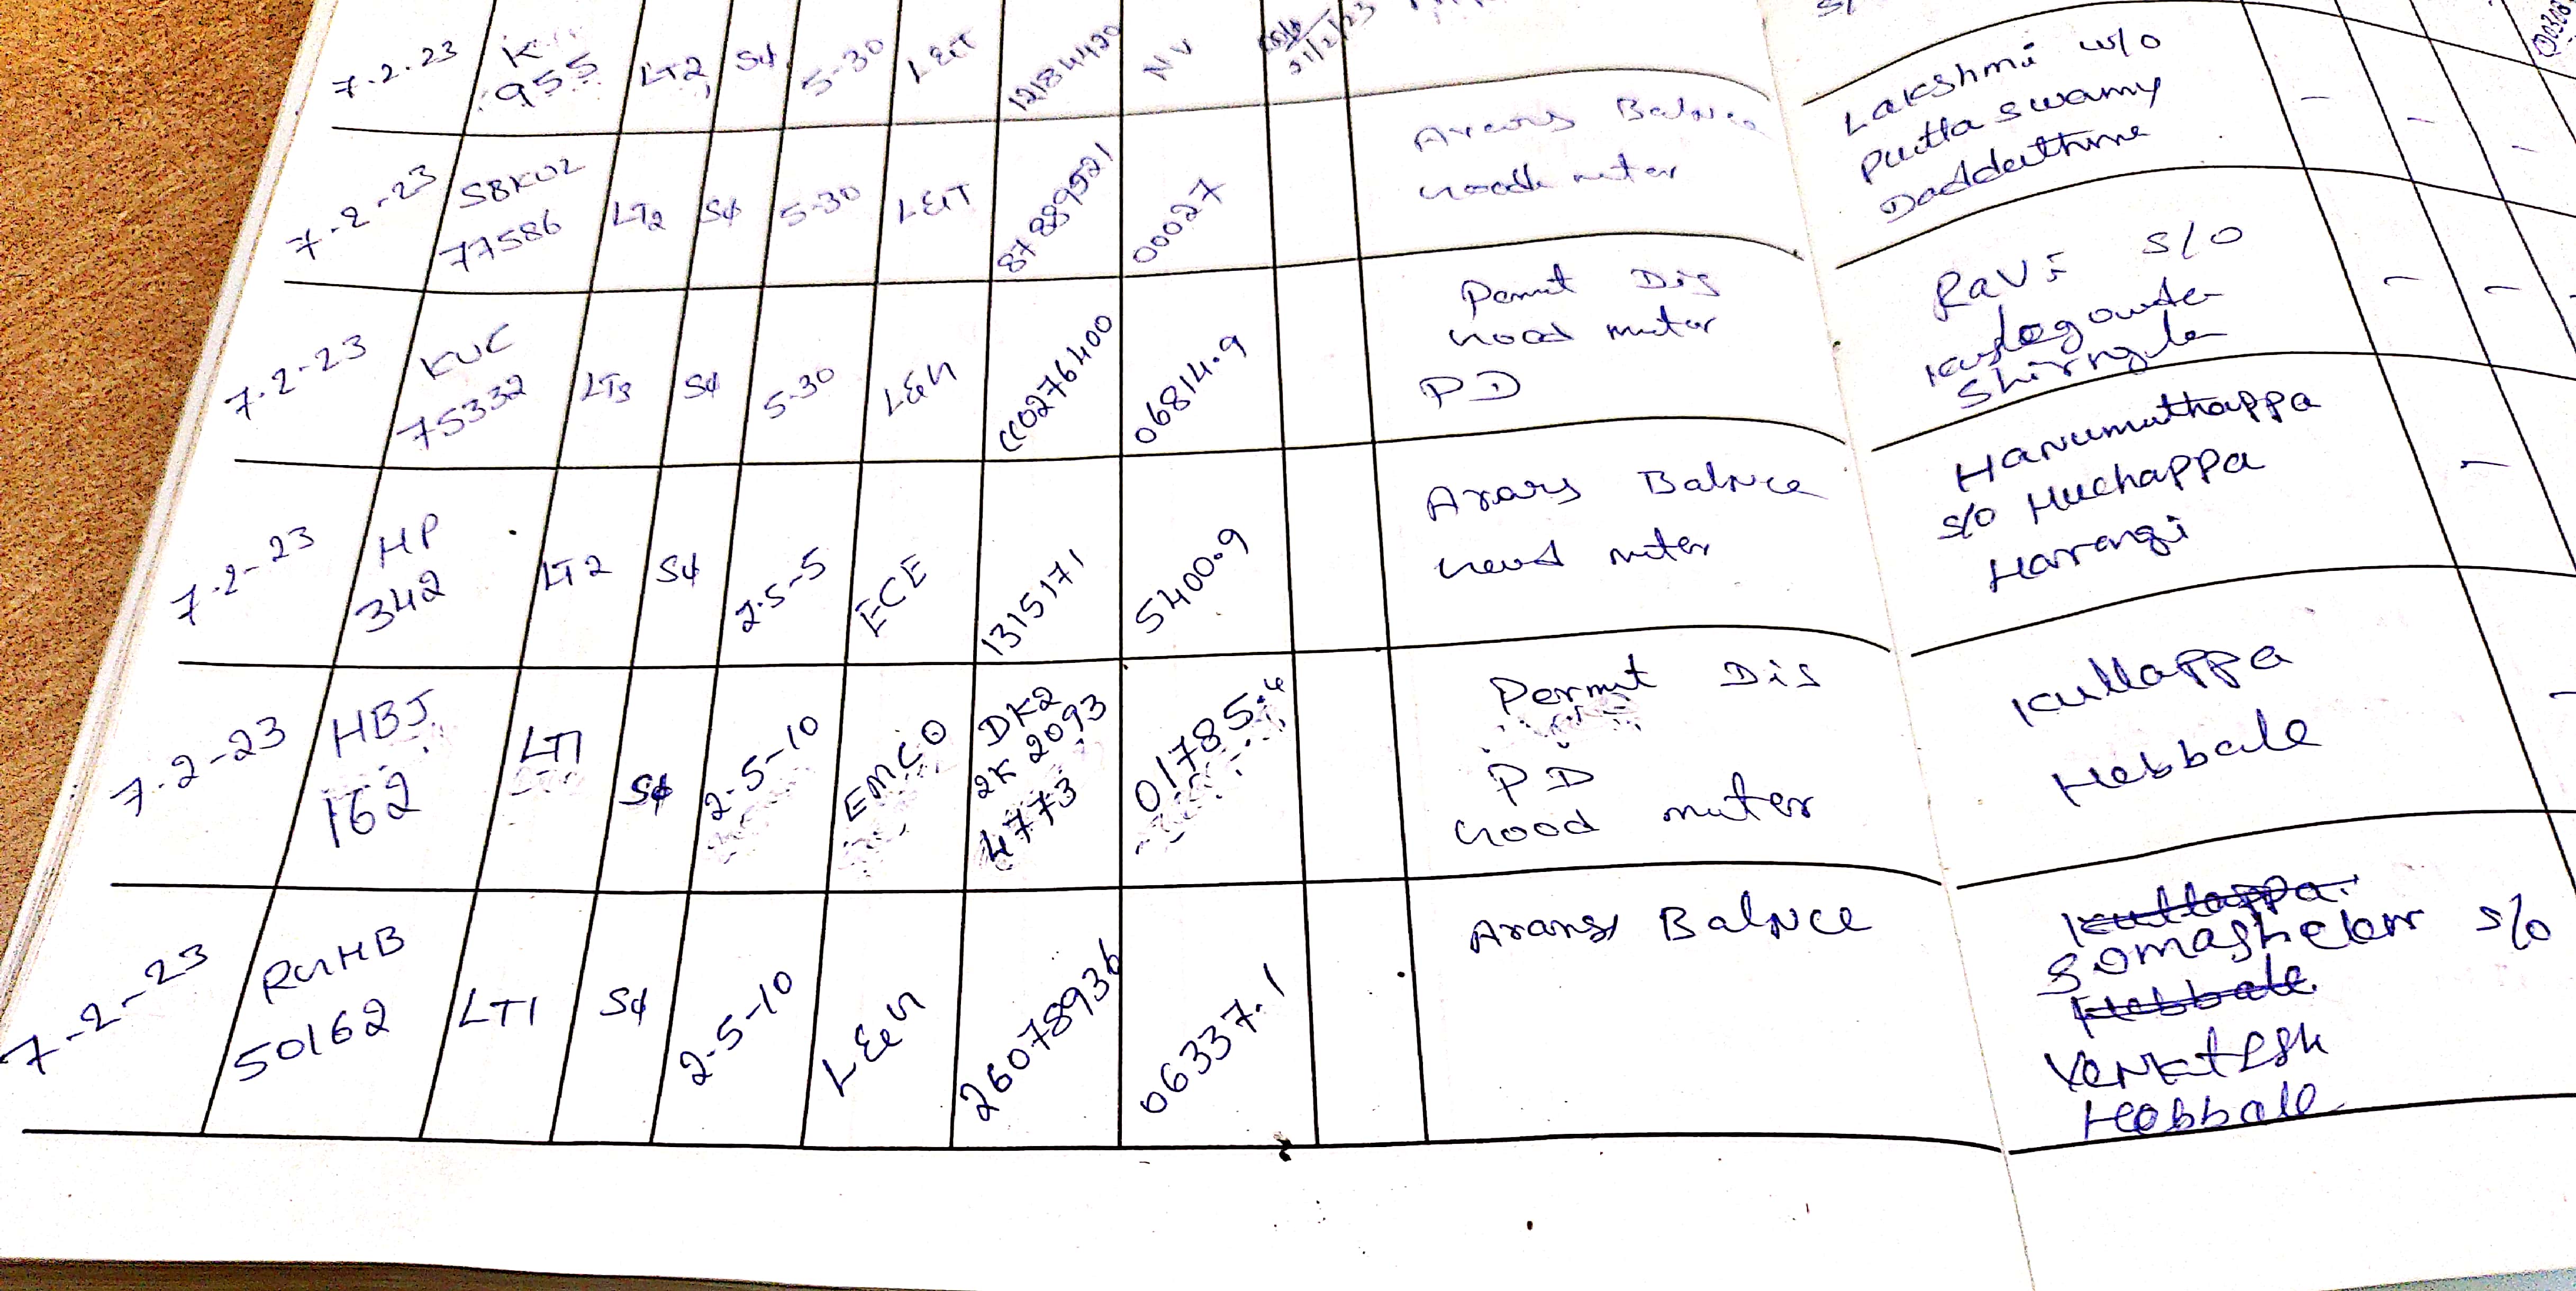 7.2.23 K 955 LT2 Sɸ 5-30 L&T 12184420 NV
21/2/23
7-2-23 SBKUZ 77586 LT2 Sɸ 5-30 L&T 87889521 00027 Arears Balnce
Good meter
Lakshmi w/o
Putta swamy
Doddathme
7.2-23 KUC 75332 LT3 Sɸ 5-30 L&G CC0276400 06814.9 Pemt Dis
Good mutor
PD
RaVi S/O
Kalegowda
Shirngla
7.2-23 HP 342 LT2 Sɸ 2.5-5 ECE 1315171 5400.9 Arars Balnce
Good muter
Hanumuthappa
S/o Huchappa
Harangi
7.2-23 HBJ 162 LT1 Sɸ 2-5-10 EMCO DK2 2K 2093 4773 01785.4 Permut Dis
PD
Good muter
Kullappa
Hebbale
7-2-23 RGHB 50162 LT1 Sɸ 2-5-10 L&G 26078936 06337.1 Arans Balnce
Kullappa
Somashekar s/o
Hebbale
Venktesh
Hebbale